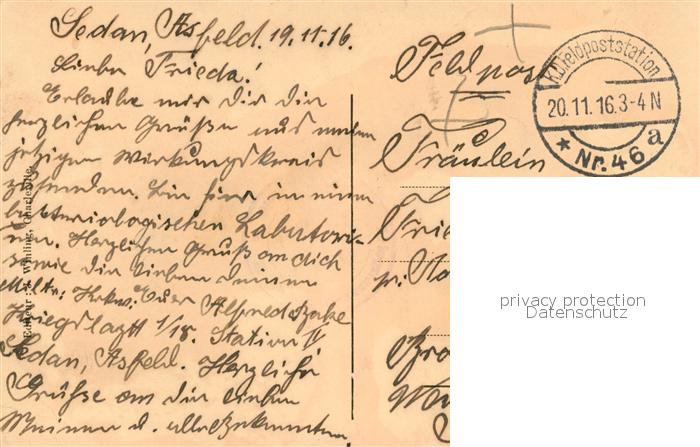 Sedan, Asfeld. 19.11.16.
Liebe Frieda!
Erlaube mir Dir die
herzlichen Grüße aus meinem
jetzigen Wirkungskreis
zu senden. Bin hier in einem
bakteriologischen Laborator-
ium. Herzlichen Gruß an dich
sowie die lieben deinen
Euer Alfred
Kriegslaztt 1/18. Station IV
Sedan, Asfeld. Herzliche
Grüße an die lieben
Meinen u. alle Bekannten.
Editeur : Winling, Charleville
Feldpost
K.D. Feldpoststation
20.11.16.3-4 N
* Nr. 46 a
Fräulein
Frie
p.
privacy protection
Datenschutz